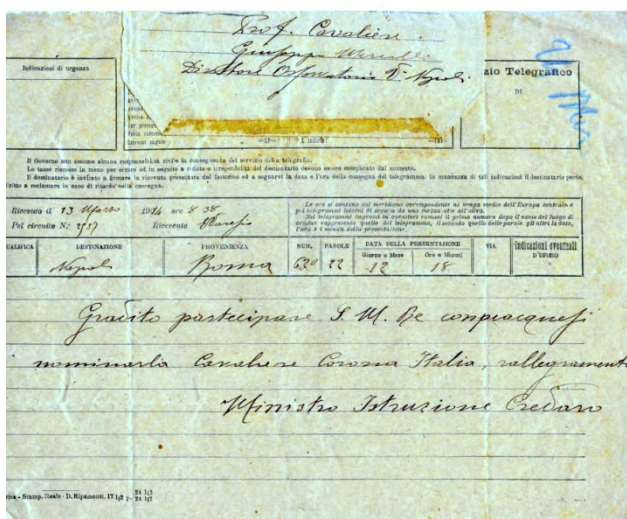 Prof. Cavaliere
Giuseppe Mercalli
Direttore Osservatorio V. Napoli
Indicazioni di urgenza
zio Telegrafico
DI
Il Governo non assume alcuna responsabilità civile in conseguenza del servizio della telegrafia.
Le tasse riscosse in meno per errore od in seguito a rifiuto o irreperibilità del destinatario devono essere completate dal mittente.
Il destinatario è invitato a firmare la ricevuta presentata dal fattorino ed a segnarvi la data e l'ora della consegna del telegramma: in mancanza di tali indicazioni il destinatario perde,
ritto a reclamare in caso di ritardo nella consegna.
Ricevuto il 13 Marzo 1914 ore 8 38
Pel circuito N.º Ricevente
Le ore si contano sul meridiano corrispondente al tempo medio dell'Europa centrale e
Nei telegrammi impressi in caratteri romani il primo numero dopo il nome del luogo di
l'ora e i minuti della presentazione.
QUALIFICA DESTINAZIONE PROVENIENZA NUM. PAROLE DATA DELLA PRESENTAZIONE VIA Indicazioni eventuali
Giorno e Mese Ore e Minuti D'UFFICIO
Napoli Roma 620 22 12 18
Gradito partecipare S. M. Re compiacquesi
nominarla Cavaliere Corona Italia, rallegramenti
Ministro Istruzione Credaro
Stamp. Reale - D. Ripamonti.